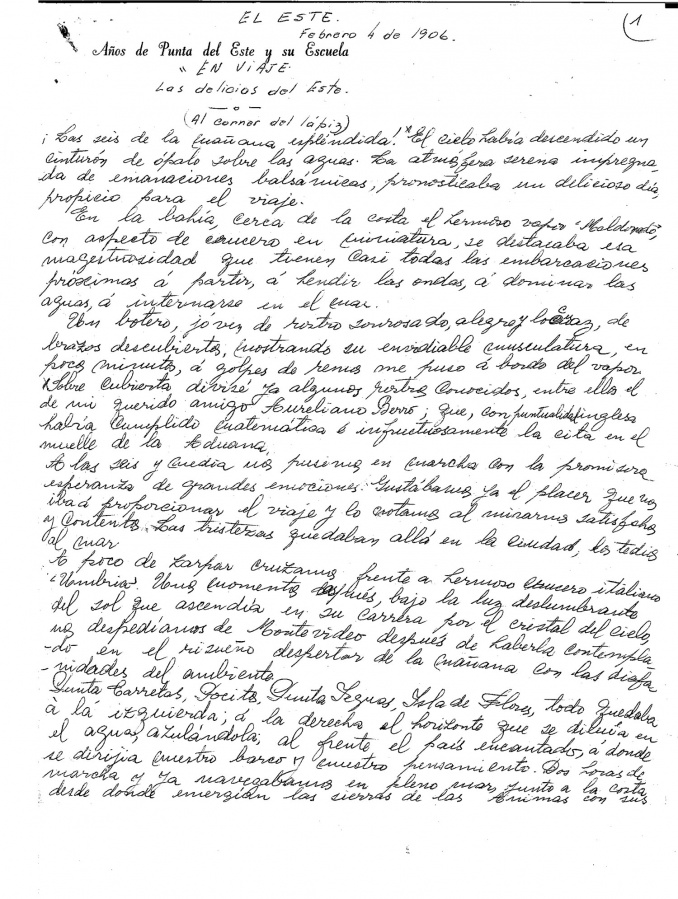 EL ESTE.
1
Febrero 4 de 1906.
Años de Punta del Este y su Escuela
" EN VIAJE.
Las delicias del Este.
— o —
(Al correr del lápiz)
¡Las seis de la mañana espléndida! El cielo había descendido un
cinturón de ópalo sobre las aguas. La atmósfera serena impregna-
da de emanaciones balsámicas, pronosticaba un delicioso día,
propicio para el viaje.
En la bahía, cerca de la costa el hermoso vapor "Maldonado",
con aspecto de crucero en miniatura, se destacaba esa
magestuosidad que tienen casi todas las embarcaciones
próximas á partir, á hendir las ondas, á dominar las
aguas, á internarse en el mar.
Un botero, jóven de rostro sonrosado, alegre y locuaz, de
brazos descubiertos, mostrando su envidiable musculatura, en
pocos minutos, á golpes de remos me puso á bordo del vapor.
Sobre cubierta divisé ya algunos rostros conocidos, entre ellos el
de mi querido amigo Aureliano Berro; que, con puntualidad inglesa
había cumplido matemática é infructuosamente la cita en el
muelle de la Aduana.
A las seis y media nos pusimos en marcha con la promisora
esperanza de grandes emociones. Gustábamos ya el placer que nos
iba á proporcionar el viaje y lo notamos al mirarnos satisfechos
y contentos. Las tristezas quedaban allá en la ciudad, los tedios
al mar
A poco de zarpar cruzamos frente a hermoso crucero italiano
"Umbria". Unos momentos después, bajo la luz deslumbrante
del sol que ascendía en su carrera por el cristal del cielo,
nos despedíamos de Montevideo después de haberla contempla-
-do en el risueño despertar de la mañana con las diafa-
-nidades del ambiente.
Punta Carretas, Pocitos, Punta Yeguas, Isla de Flores, todo quedaba
á la izquierda; á la derecha el horizonte que se diluía en
el agua, azulándola; al frente el país encantado, á donde
se dirijía nuestro barco y nuestro pensamiento. Dos horas de
marcha y ya navegábamos en pleno mar, junto a la costa
desde donde emergían las sierras de las Animas con sus